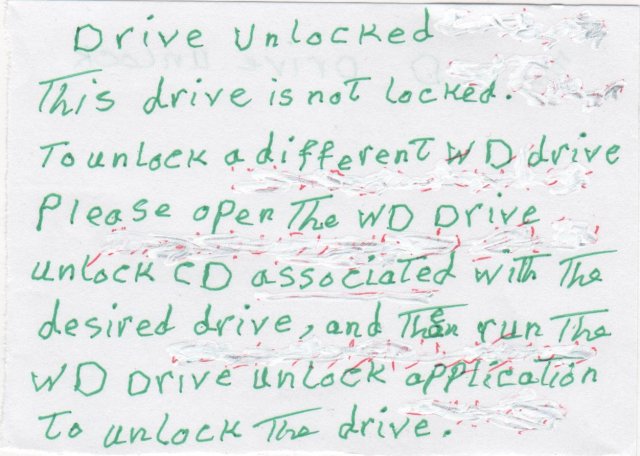 Drive Unlocked
This drive is not locked.
To unlock a different WD drive
Please open The WD Drive
unlock CD associated with The
desired drive, and Then run The
WD Drive unlock application
To unlock The drive.